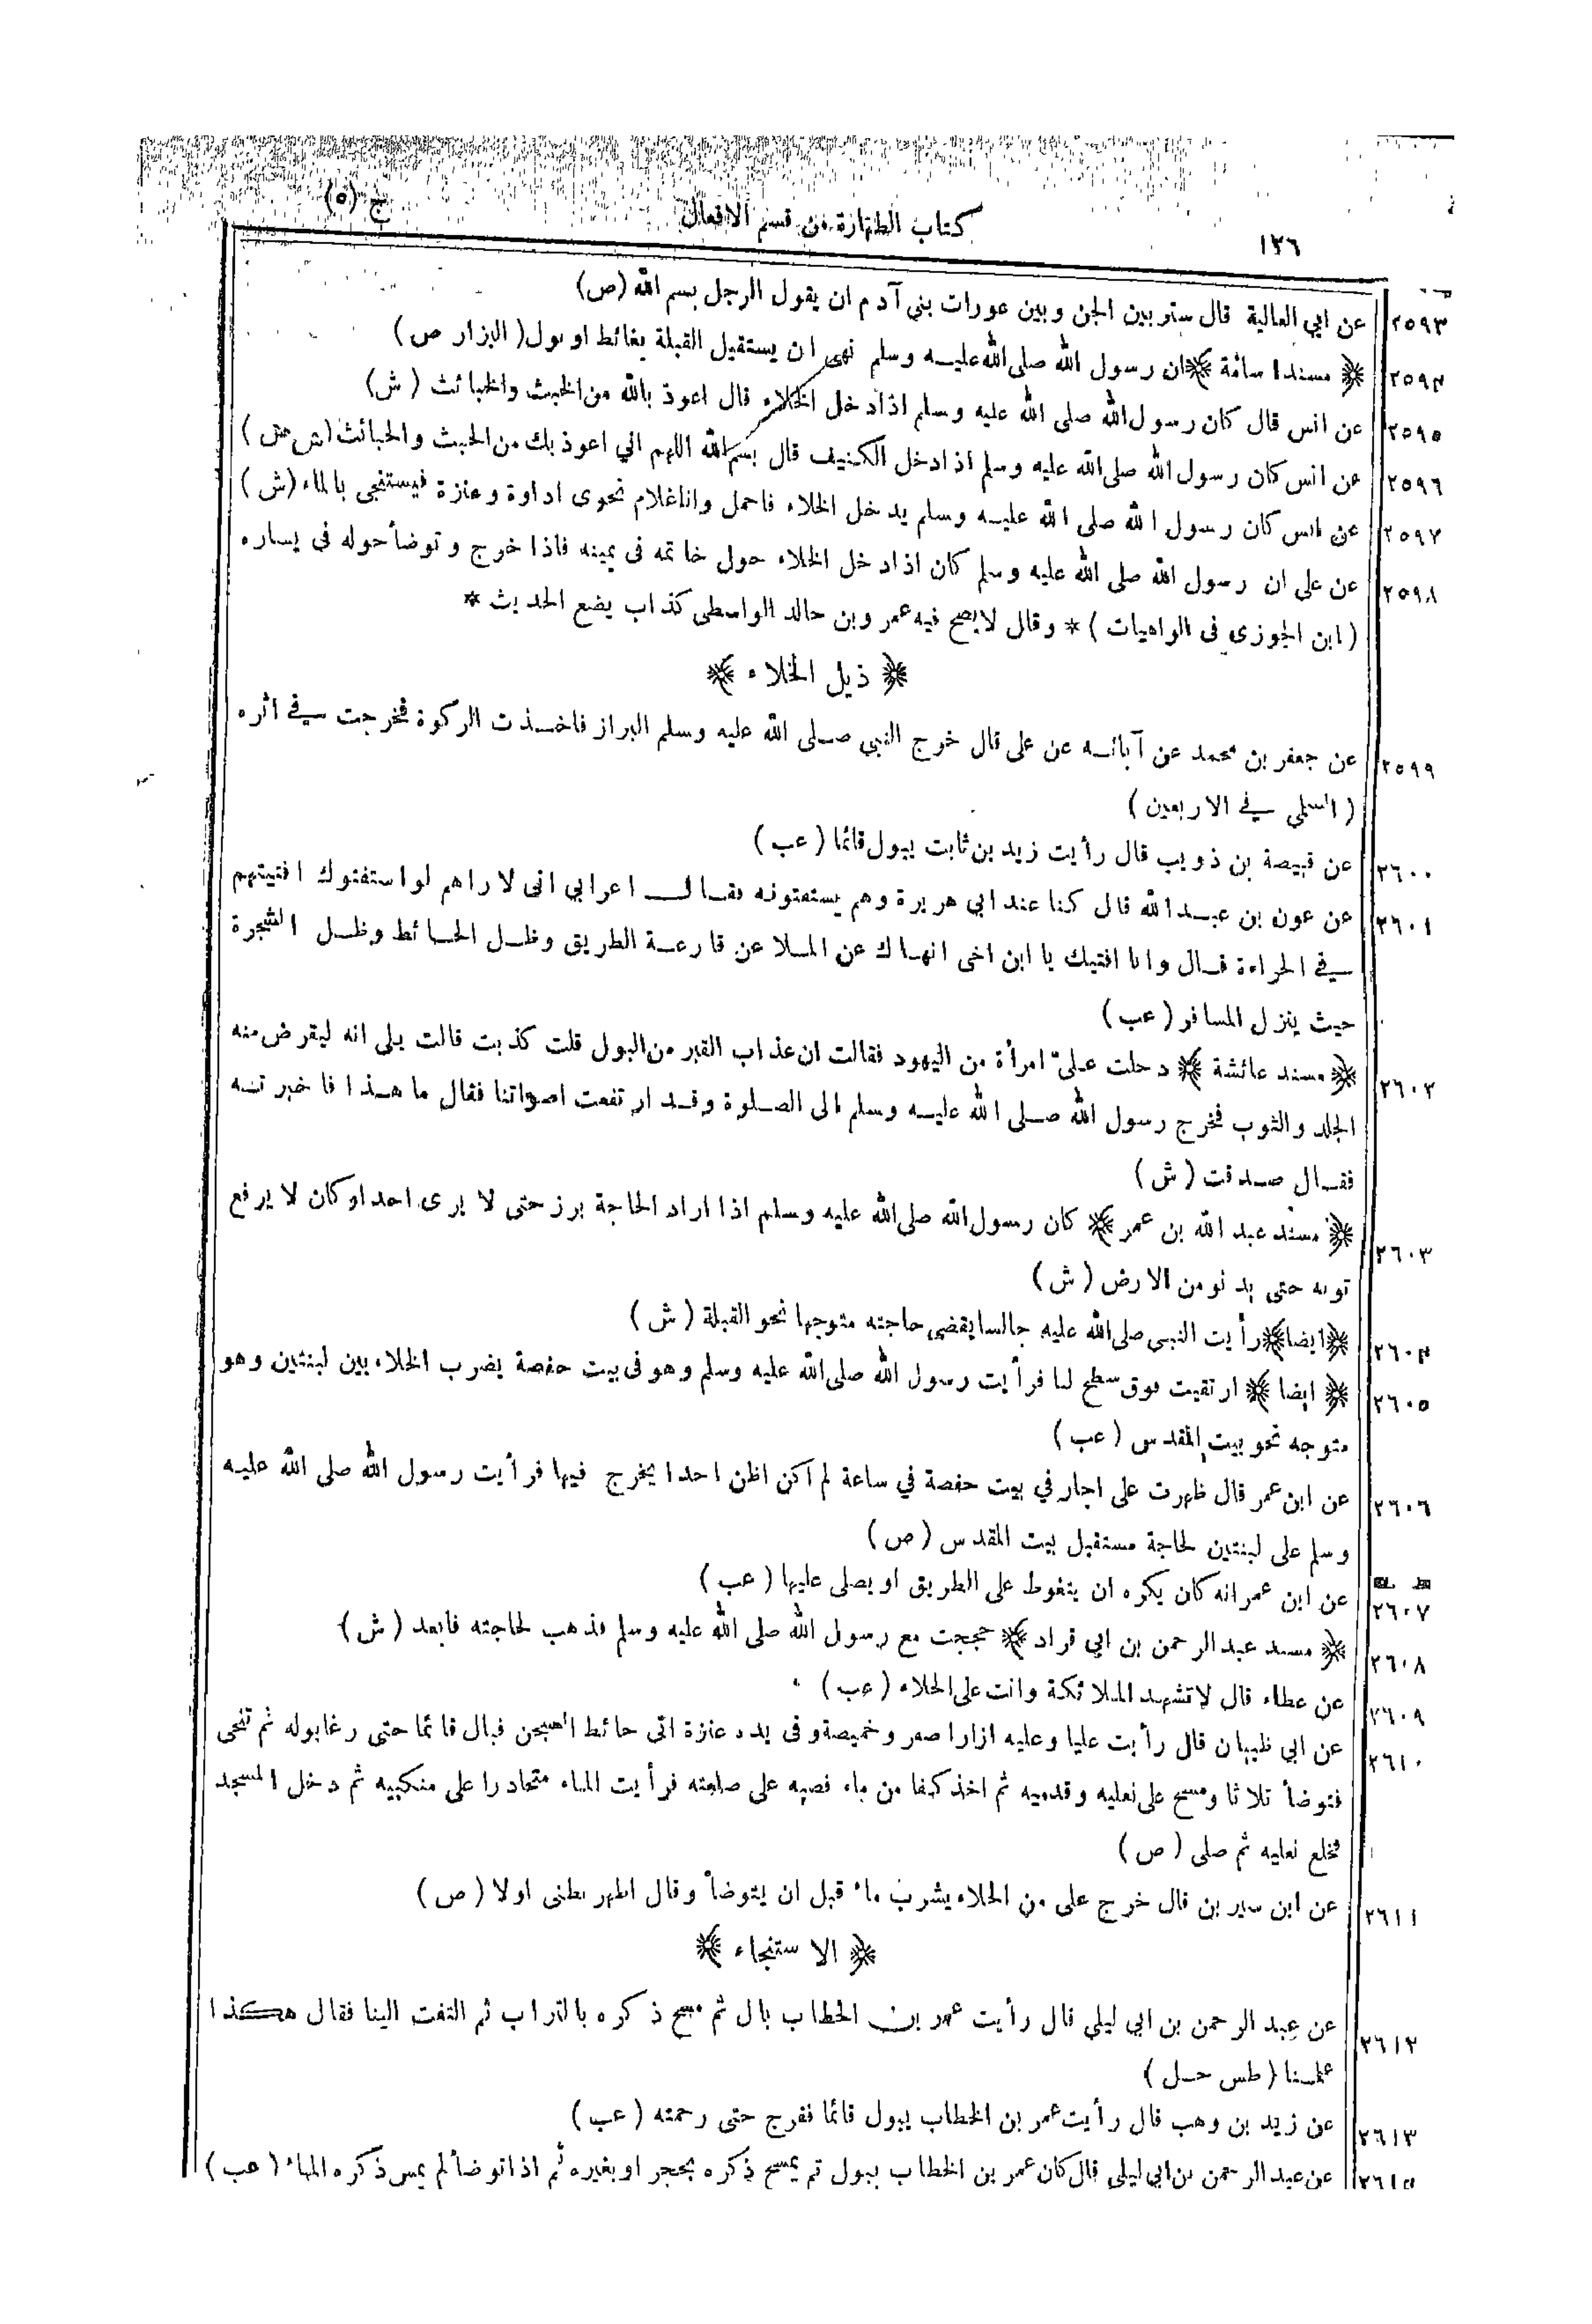 ج (٥)
كتاب الطهارة من قسم الافعال
١٢٦
٢٥٩٣ عن ابي العالية قال ستر بين الجن وبين عورات بني آدم ان يقول الرجل بسم الله (ص)
٢٥٩٤ ﴿ مسند اسامة ﴾ ان رسول الله صلى الله عليه وسلم نهى ان يستقبل القبلة بغائط او بول (البزار ص)
٢٥٩٥ عن انس قال كان رسول الله صلى الله عليه وسلم اذا دخل الخلاء قال اعوذ بالله من الخبث والخبائث (ش)
٢٥٩٦ عن انس كان رسول الله صلى الله عليه وسلم اذا دخل الكنيف قال بسم الله اللهم اني اعوذ بك من الخبث والخبائث (ش)
٢٥٩٧ عن انس كان رسول الله صلى الله عليه وسلم يدخل الخلاء فاحمل وانا غلام نحوى اداوة وعنزة فيستنجى بالماء (ش)
٢٥٩٨ عن على ان رسول الله صلى الله عليه وسلم كان اذا دخل الخلاء حول خاتمه فى يمينه فاذا خرج وتوضأ حوله فى يساره
(ابن الجوزى فى الواهيات) * وقال لا يصح فيه عمرو بن خالد الواسطى كذاب يضع الحديث *
﴿ ذيل الخلاء ﴾
٢٥٩٩ عن جعفر بن محمد عن آبائه عن على قال خرج النبي صلى الله عليه وسلم البراز فاخذت الركوة فخرجت في اثره
(السلمي في الاربعين)
٢٦٠٠ عن قبيصة بن ذويب قال رأيت زيد بن ثابت يبول قائما (عب)
٢٦٠١ عن عون بن عبد الله قال كنا عند ابي هريرة وهم يستفتونه فقال اعرابي انى لاراهم لو استفتوك افتيتهم
في الخراءة قال وانا افتيك يا ابن اخى انهاك عن الملا عن قارعة الطريق وظل الحائط وظل الشجرة
حيث ينزل المسافر (عب)
٢٦٠٢ ﴿ مسند عائشة ﴾ دخلت علىّ امرأة من اليهود فقالت ان عذاب القبر من البول قلت كذبت قالت بلى انه ليقرض منه
الجلد والثوب فخرج رسول الله صلى الله عليه وسلم الى الصلوة وقد ارتفعت اصواتنا فقال ما هذا فاخبرته
فقال صدقت (ش)
٢٦٠٣ ﴿ مسند عبد الله بن عمر ﴾ كان رسول الله صلى الله عليه وسلم اذا اراد الحاجة برز حتى لا يرى احدا وكان لا يرفع
ثوبه حتى يدنو من الارض (ش)
٢٦٠٤ ﴿ ايضا ﴾ رأيت النبى صلى الله عليه جالسا يقضى حاجته متوجها نحو القبلة (ش)
٢٦٠٥ ﴿ ايضا ﴾ ارتقيت فوق سطح لنا فرأيت رسول الله صلى الله عليه وسلم وهو فى بيت حفصة يضرب الخلاء بين لبنتين وهو
متوجه نحو بيت المقدس (عب)
٢٦٠٦ عن ابن عمر قال ظهرت على اجار في بيت حفصة في ساعة لم اكن اظن احدا يخرج فيها فرأيت رسول الله صلى الله عليه
وسلم على لبنتين لحاجة مستقبل بيت المقدس (ص)
٢٦٠٧ عن ابن عمر انه كان يكره ان يتغوط على الطريق او يصلى عليها (عب)
٢٦٠٨ ﴿ مسند عبد الرحمن بن ابي قراد ﴾ حججت مع رسول الله صلى الله عليه وسلم فذهب لحاجته فابعد (ش)
٢٦٠٩ عن عطاء قال لا تشهد الملائكة وانت على الخلاء (عب)
٢٦١٠ عن ابي ظبيان قال رأيت عليا وعليه ازار اصفر وخميصة وفى يده عنزة اتى حائط السجن فبال قائما حتى رغا بوله ثم تنحى
فتوضأ ثلاثا ومسح على نعليه وقدميه ثم اخذ كفا من ماء فصبه على صلعته فرأيت الماء متحادرا على منكبيه ثم دخل المسجد
فخلع نعليه ثم صلى (ص)
٢٦١١ عن ابن سيرين قال خرج على من الخلاء يشرب ماء قبل ان يتوضأ وقال اطهر بطنى اولا (ص)
﴿ الاستنجاء ﴾
٢٦١٢ عن عبد الرحمن بن ابي ليلى قال رأيت عمر بن الخطاب بال ثم مسح ذكره بالتراب ثم التفت الينا فقال هكذا
علمنا (طس حل)
٢٦١٣ عن زيد بن وهب قال رأيت عمر بن الخطاب يبول قائما ففرج حتى رحمته (عب)
٢٦١٤ عن عبد الرحمن بن ابي ليلى قال كان عمر بن الخطاب يبول ثم يمسح ذكره بحجر او بغيره ثم اذا توضأ لم يمس ذكره الماء (عب)